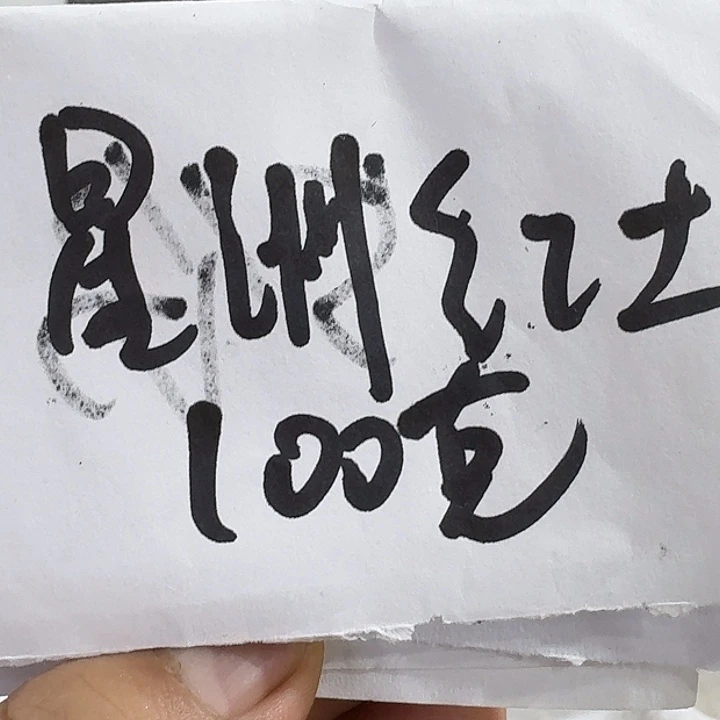 星洲红土
100克